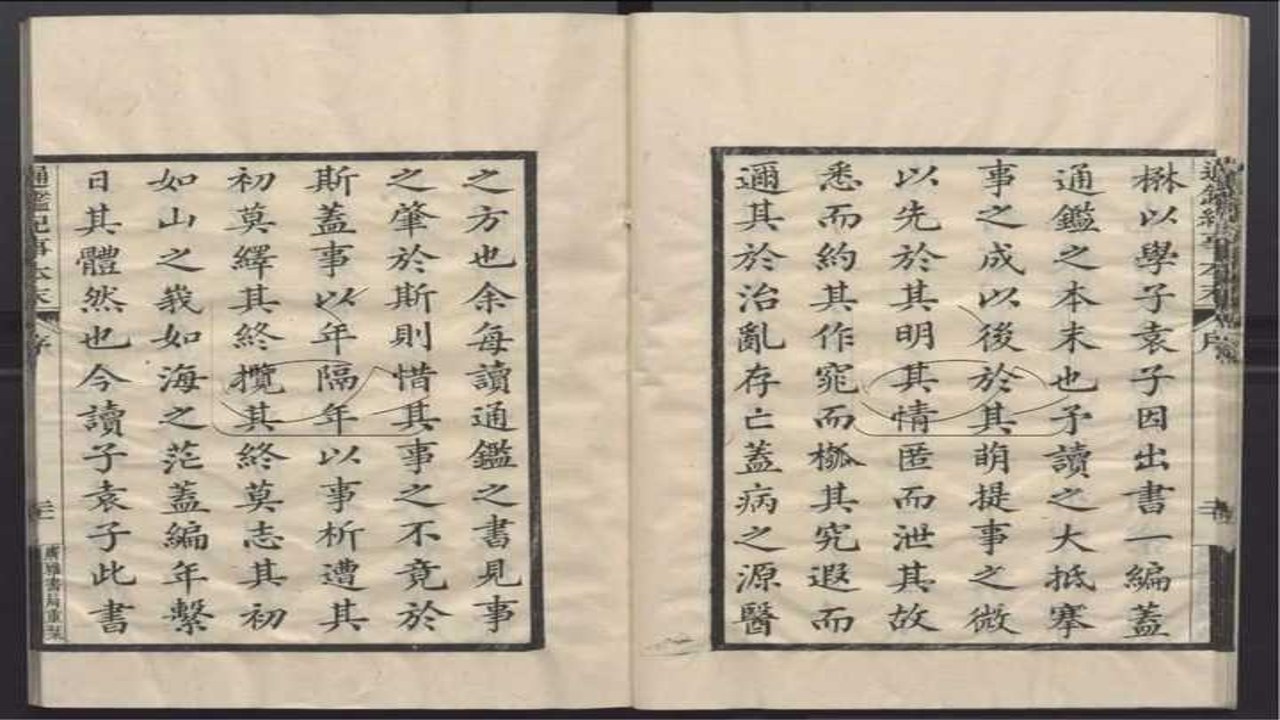 楙以學子袁子因出書一編蓋
通鑑之本末也予讀之大抵搴
事之成以後於其萌提事之微
以先於其明其情匿而泄其故
悉而約其作窕而槬其究遐而
邇其於治亂存亡蓋病之源醫
之方也余每讀通鑑之書見事
之肇於斯則惜其事之不竟於
斯蓋事以年隔年以事析遭其
初莫繹其終攬其終莫志其初
如山之峩如海之茫蓋編年繫
日其體然也今讀子袁子此書
通鑑紀事本末 序 廣雅書局重栞